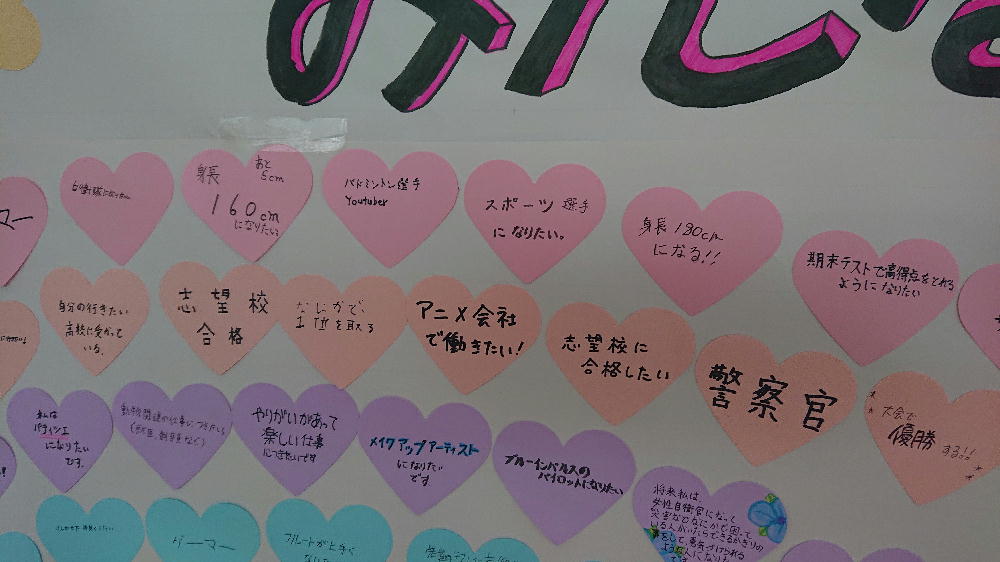 みんな
マー
自衛隊になりたい
身長
あと
5cm
160cm
になりたい
バドミントン選手
Youtuber
スポーツ選手
になりたい。
身長180cm
になる!!
期末テストで高得点をとれる
ようになりたい
自分の行きたい
高校に受かって
いる。
志望校
合格
なにかで、
1位を取る
アニメ会社
で働きたい!
志望校に
合格したい
警察官
大会で
優勝する!!
私は
パティシエ
になりたい
です。
動物関連の仕事につきたい
やりがいがあって
楽しい仕事
につきたいです
メイクアップアーティスト
になりたい
です
ブルーインパルスの
パイロットになりたい
将来私は
女性自衛官になって
災害などなにかで困って
いる人がいたらできるかぎりの
事をして、勇気づけられる
ような人になりた
です
ゲーマー
フルートが上手く